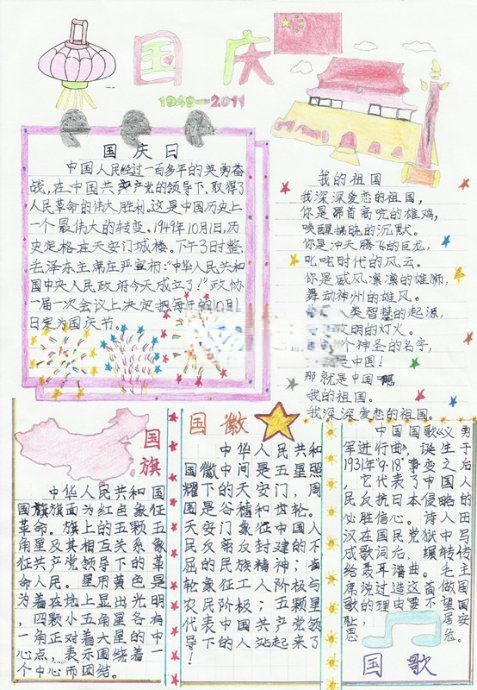 国庆
1949—2011
国庆日
中国人民经过一百多年的英勇奋
战,在中国共产党的领导下,取得了
人民革命的伟大胜利,这是中国历史上
一个最伟大的转变。1949年10月1日,历
史定格在天安门城楼。下午3时整,
毛泽东主席庄严宣布:"中华人民共和
国中央人民政府今天成立了!"政协
一届一次会议上决定把每年的10月1
日定为国庆节
我的祖国
我深深爱恋的祖国,
你是昂首高吭的雄鸡,
唤醒拂晓的沉默。
你是冲天腾飞的巨龙,
叱咤时代的风云。
你是威风凛凛的雄狮,
舞动神州的雄风。
人类智慧的起源,
文明的灯火。
个神圣的名字,
是中国!
那就是中国啊
我的祖国。
我深深爱恋的祖国。
国旗
中华人民共和国
国旗旗面为红色象征
革命。旗上的五颗五
角星及其相互关系象
征共产党领导下的革
命人民。星用黄色是
为着在地上显出光明
,四颗小五角星各有
一角正对着大星的中
心点,表示围绕着一
个中心而团结。
国徽
中华人民共和
国徽中间是五星照
耀下的天安门,周
围是谷穗和齿轮。
天安门象征中国人
民反帝反封建的不
屈的民族精神;齿
轮象征工人阶极与
农民阶极;五颗星
代表中国共产党领
导下的人站起来了
!
中国国歌《义勇
军进行曲》,诞生于
1931年"9·18"事变之后
,它代表了中国人
民反抗日本侵略的
必胜信心。诗人田
汉在国民党狱中写
成歌词后,辗转传
给聂耳谱曲。毛主
席说过造这面做国
歌的理由要不望国
耻
居安
思危。
国歌